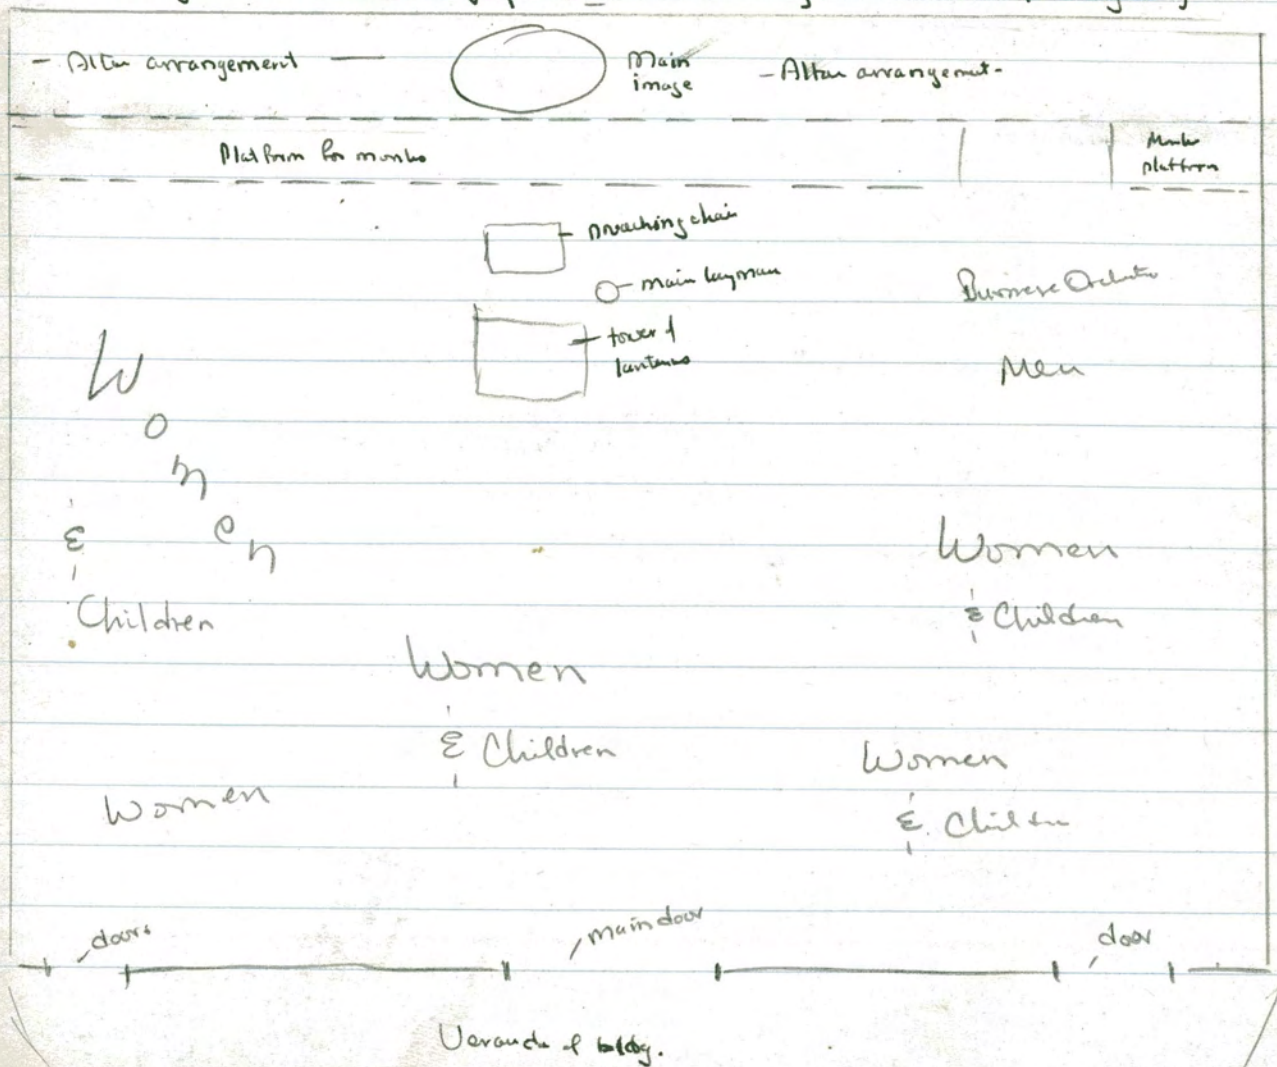 - Altar arrangement -
Main
image
- Altar arrangement -
Platform for monks
Monks
platform
preaching chair
main layman
Burmese Orchestra
tower of
lanterns
Men
Women
&
Children
Women
& Children
Women
& Children
Women
& Children
Women
doors
main door
door
Veranda of bldg.